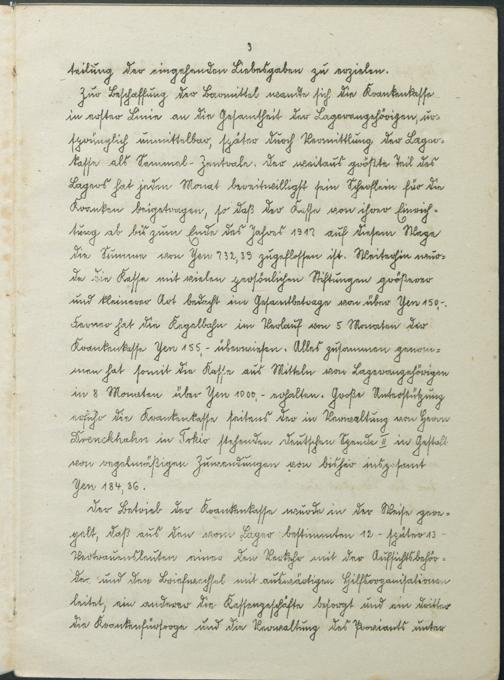 3
teilung der eingehenden Liebesgaben zu erzielen.
Zur Beschaffung der Barmittel wandte sich die Krankenkasse
in erster Linie an die Gesamtheit der Lagerangehörigen, ur-
sprünglich unmittelbar, später durch Vermittlung der Lager-
kasse als Sammel-Zentrale. Der weitaus größte Teil des
Lagers hat jeden Monat bereitwilligst sein Scherflein für die
Kranken beigetragen, so daß der Kasse von ihrer Einrich-
tung ab bis zum Ende des Jahres 1917 auf diesem Wege
die Summe von Yen 732,39 zugeflossen ist. Weiterhin wur-
de die Kasse mit vielen persönlichen Stiftungen größerer
und kleinerer Art bedacht im Gesamtbetrage von über Yen 150,-.
Ferner hat die Kegelbahn im Verlauf von 5 Monaten der
Krankenkasse Yen 155,- überwiesen. Alles zusammen genom-
men hat somit die Kasse aus Mitteln von Lagerangehörigen
in 8 Monaten über Yen 1000,- erhalten. Große Unterstützung
erfuhr die Krankenkasse seitens der in Verwaltung von Herrn
Drenckhahn in Tokio stehenden deutschen Spende II in Gestalt
von regelmäßigen Zuwendungen von bisher insgesamt
Yen 184,36.
Der Betrieb der Krankenkasse wurde in der Weise gere-
gelt, daß aus den vom Lager bestimmten 12 - später 13 -
Vertrauensleuten einer den Verkehr mit der Aufsichtsbehör-
de und den Briefwechsel mit auswärtigen Hilfsorganisationen
leitet, ein anderer die Kassengeschäfte besorgt und ein dritter
die Krankenfürsorge und die Verwaltung des Proviants unter